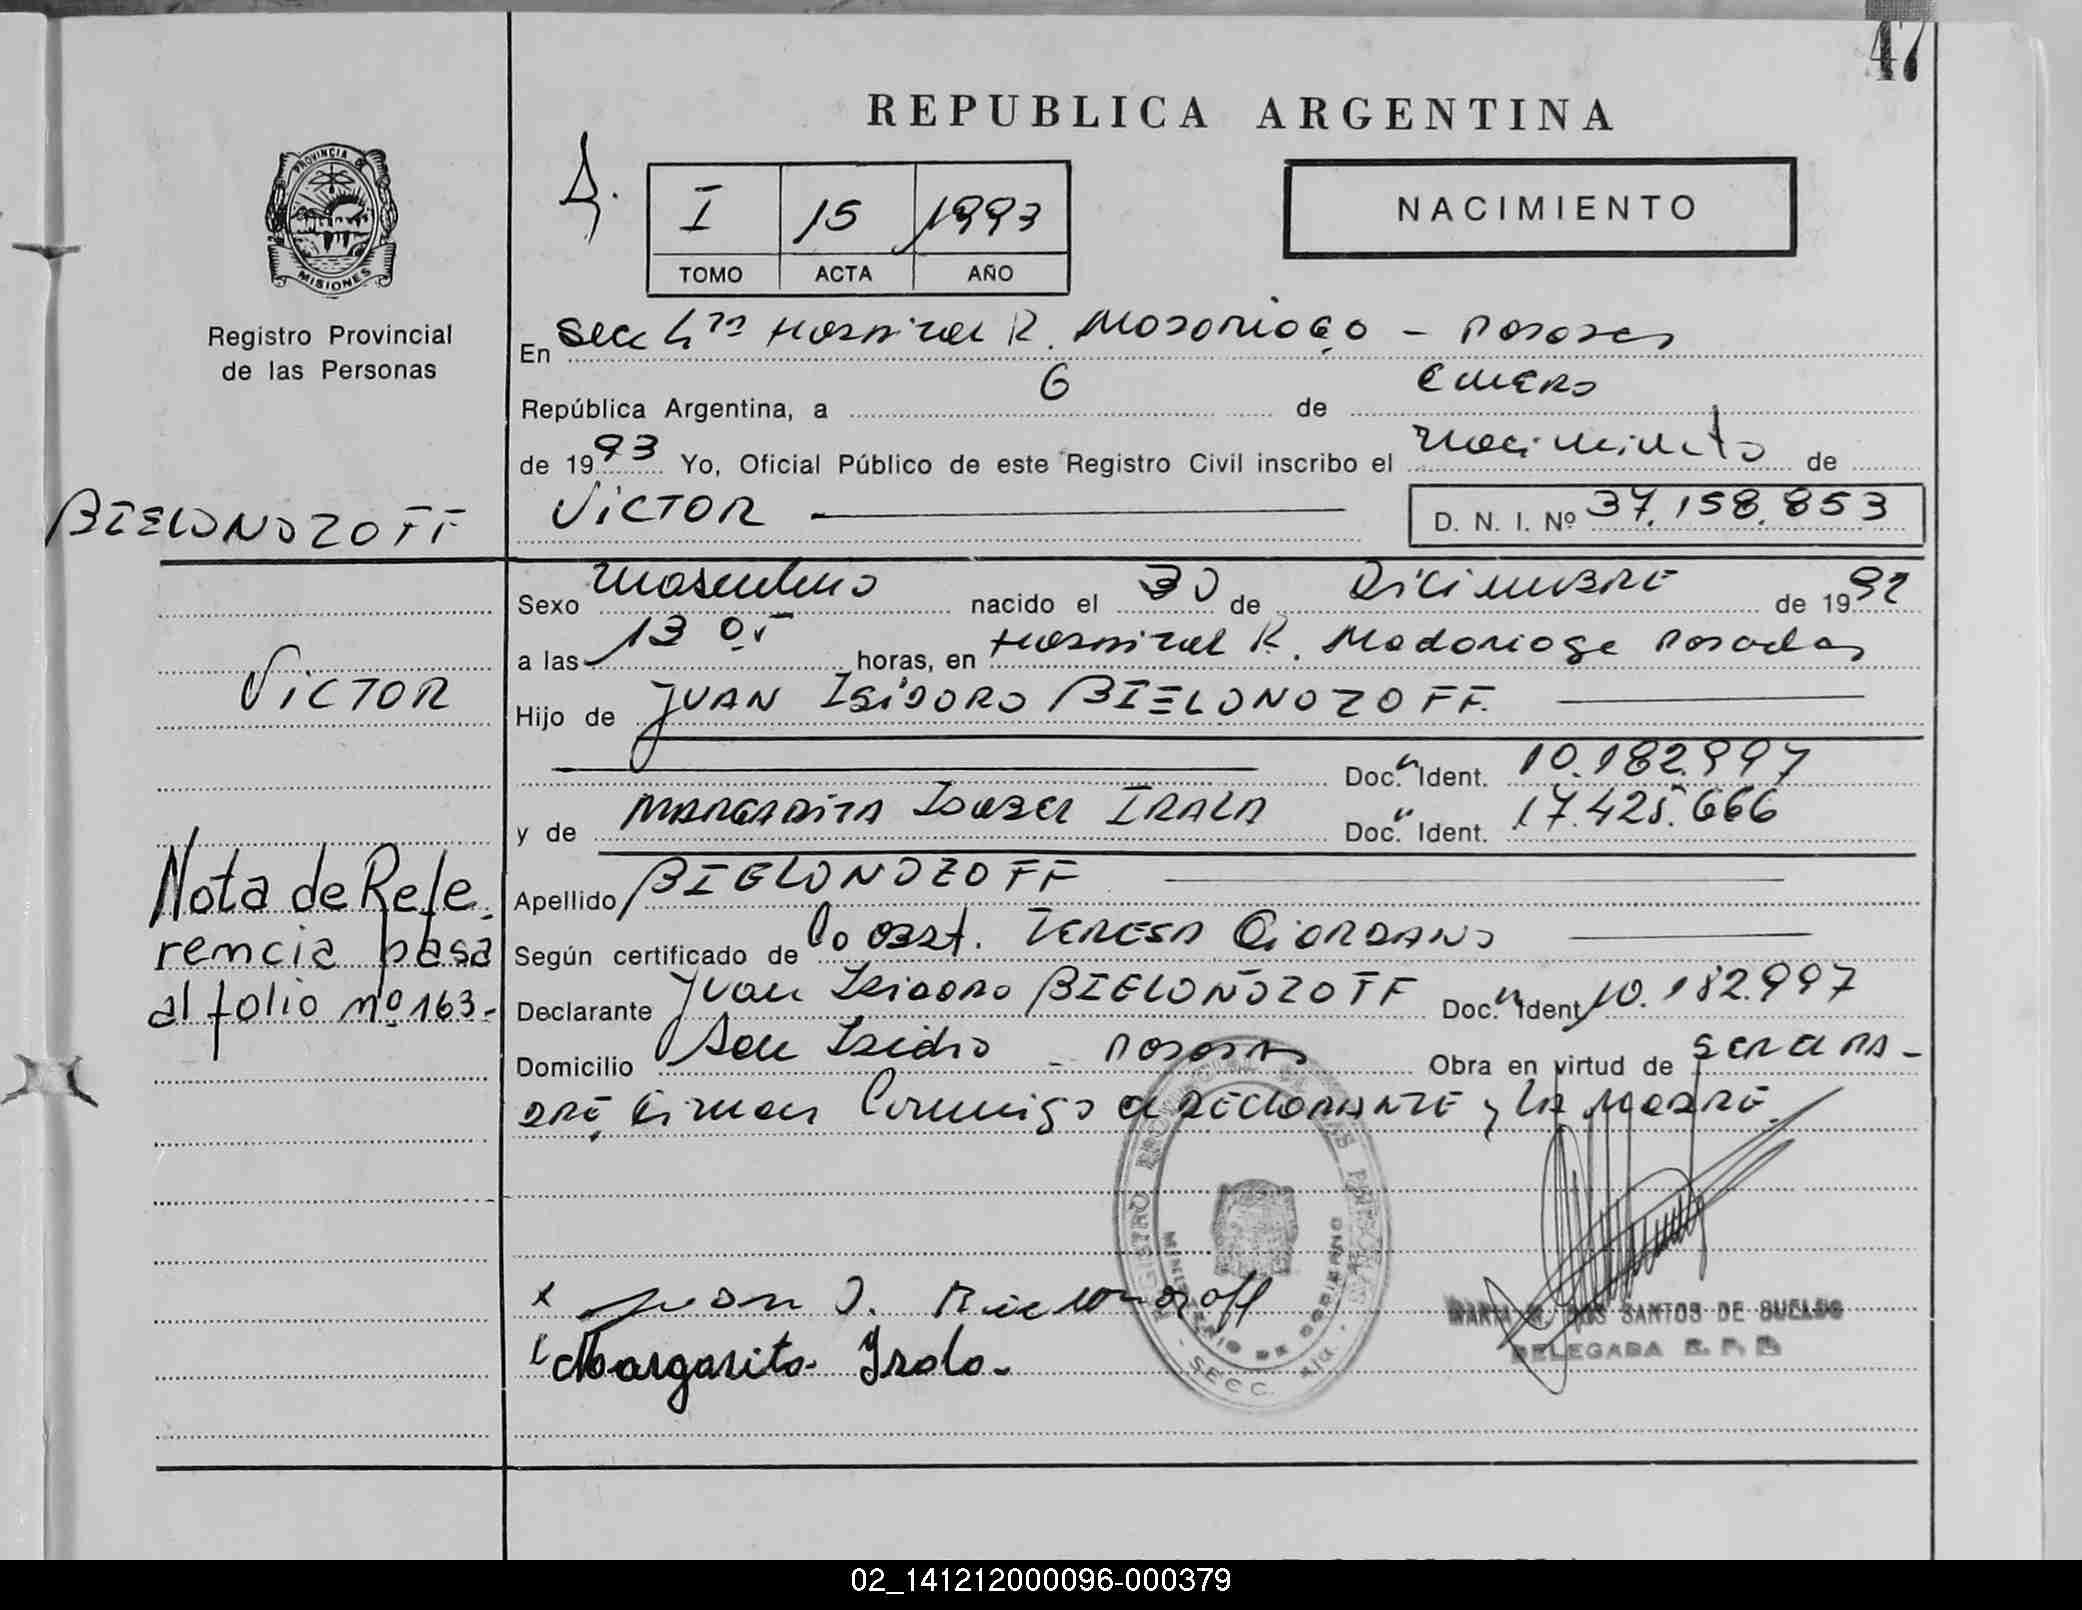 47
REPUBLICA ARGENTINA
PROVINCIA DE
MISIONES
Registro Provincial
de las Personas
I 15 1993
TOMO ACTA AÑO
NACIMIENTO
En Secc 4ta Hospital R. Madariaga - Posadas
República Argentina, a 6 de ENERO
de 1993 Yo, Oficial Público de este Registro Civil inscribo el nacimiento de
VICTOR D. N. I. Nº 37.158.853
BIELONOZOFF
Sexo masculino nacido el 30 de DICIEMBRE de 1992
a las 13 05 horas, en Hospital R. Madariaga Posadas
VICTOR
Hijo de JUAN ISIDORO BIELONOZOFF
Doc. Ident. 10.182.997
y de MARGARITA ISABEL IRALA Doc. Ident. 17.425.666
Apellido BIELONOZOFF
Nota de Refe-
rencia pasa
al folio nº 163.-
Según certificado de Obst. TERESA GIORDANO
Declarante Juan Isidoro BIELONOZOFF Doc. Ident. 10.182.997
Domicilio San Isidro - POSADAS Obra en virtud de SER EL PA-
DRE, firman conmigo el DECLARANTE y LA MADRE.
REGISTRO PROVINCIAL DE LAS PERSONAS
MINISTERIO DE GOBIERNO
- SECC. 4ta. -
x Juan I. Bielonozoff
Margarita Irala-
MARIA DOS SANTOS DE SUELDO
DELEGADA R. P. P.
02_141212000096-000379